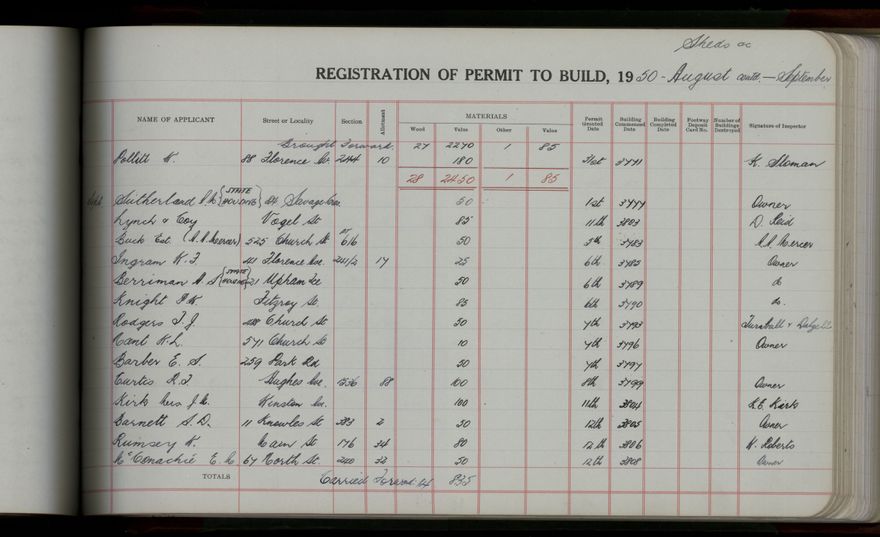 Sheds &c
REGISTRATION OF PERMIT TO BUILD, 1950 - August contd. - September
NAME OF APPLICANT Street or Locality Section Allotment MATERIALS Wood Value Other Value Permit Granted Date Building Commenced Date Building Completed Date Footway Deposit Card No. Number of Buildings Destroyed Signature of Inspector
Brought Forward. 27 2270 1 85
Pollitt K. 88 Florence Av. 244 10 180 31st 3771 K. Sloman
28 2450 1 85
Sept Sutherland (STATE HOUSING) 84 Savage Cres. 50 1st 3777 Owner
Lynch & Coy Vogel St 85 11th 3803 D. Reid
Buck Est. (A.A. Mercer) 525 Church St PT 616 50 5th 3783 A.A. Mercer
Ingram K. J. 41 Florence Ave. 241/2 17 25 6th 3785 Owner
Berriman A. S (STATE HOUSING) 21 Upham Tce 50 6th 3789 do
Knight Fitzroy St. 85 6th 3790 do.
Rodgers T. J. Church St 50 7th 3793 Turnbull & Dalzell
Cant K.L. 571 Church St 10 7th 3796 Owner
Barber E. S. 259 Park Rd 50 7th 3797
Curtis R. J. Hughes Ave. 1556 88 100 8th 3799 Owner
Kirk Mrs J. E. Winston Av. 100 11th 3804 R.E. Kirk
Barnett S. D. 11 Knowles St 383 2 50 12th 3805 Owner
Rumsey K. Cain St 176 34 80 12th 3806 W. Roberts
McConachie E. 67 North St. 240 32 50 12th 3808 Owner
TOTALS Carried Forward 14 835